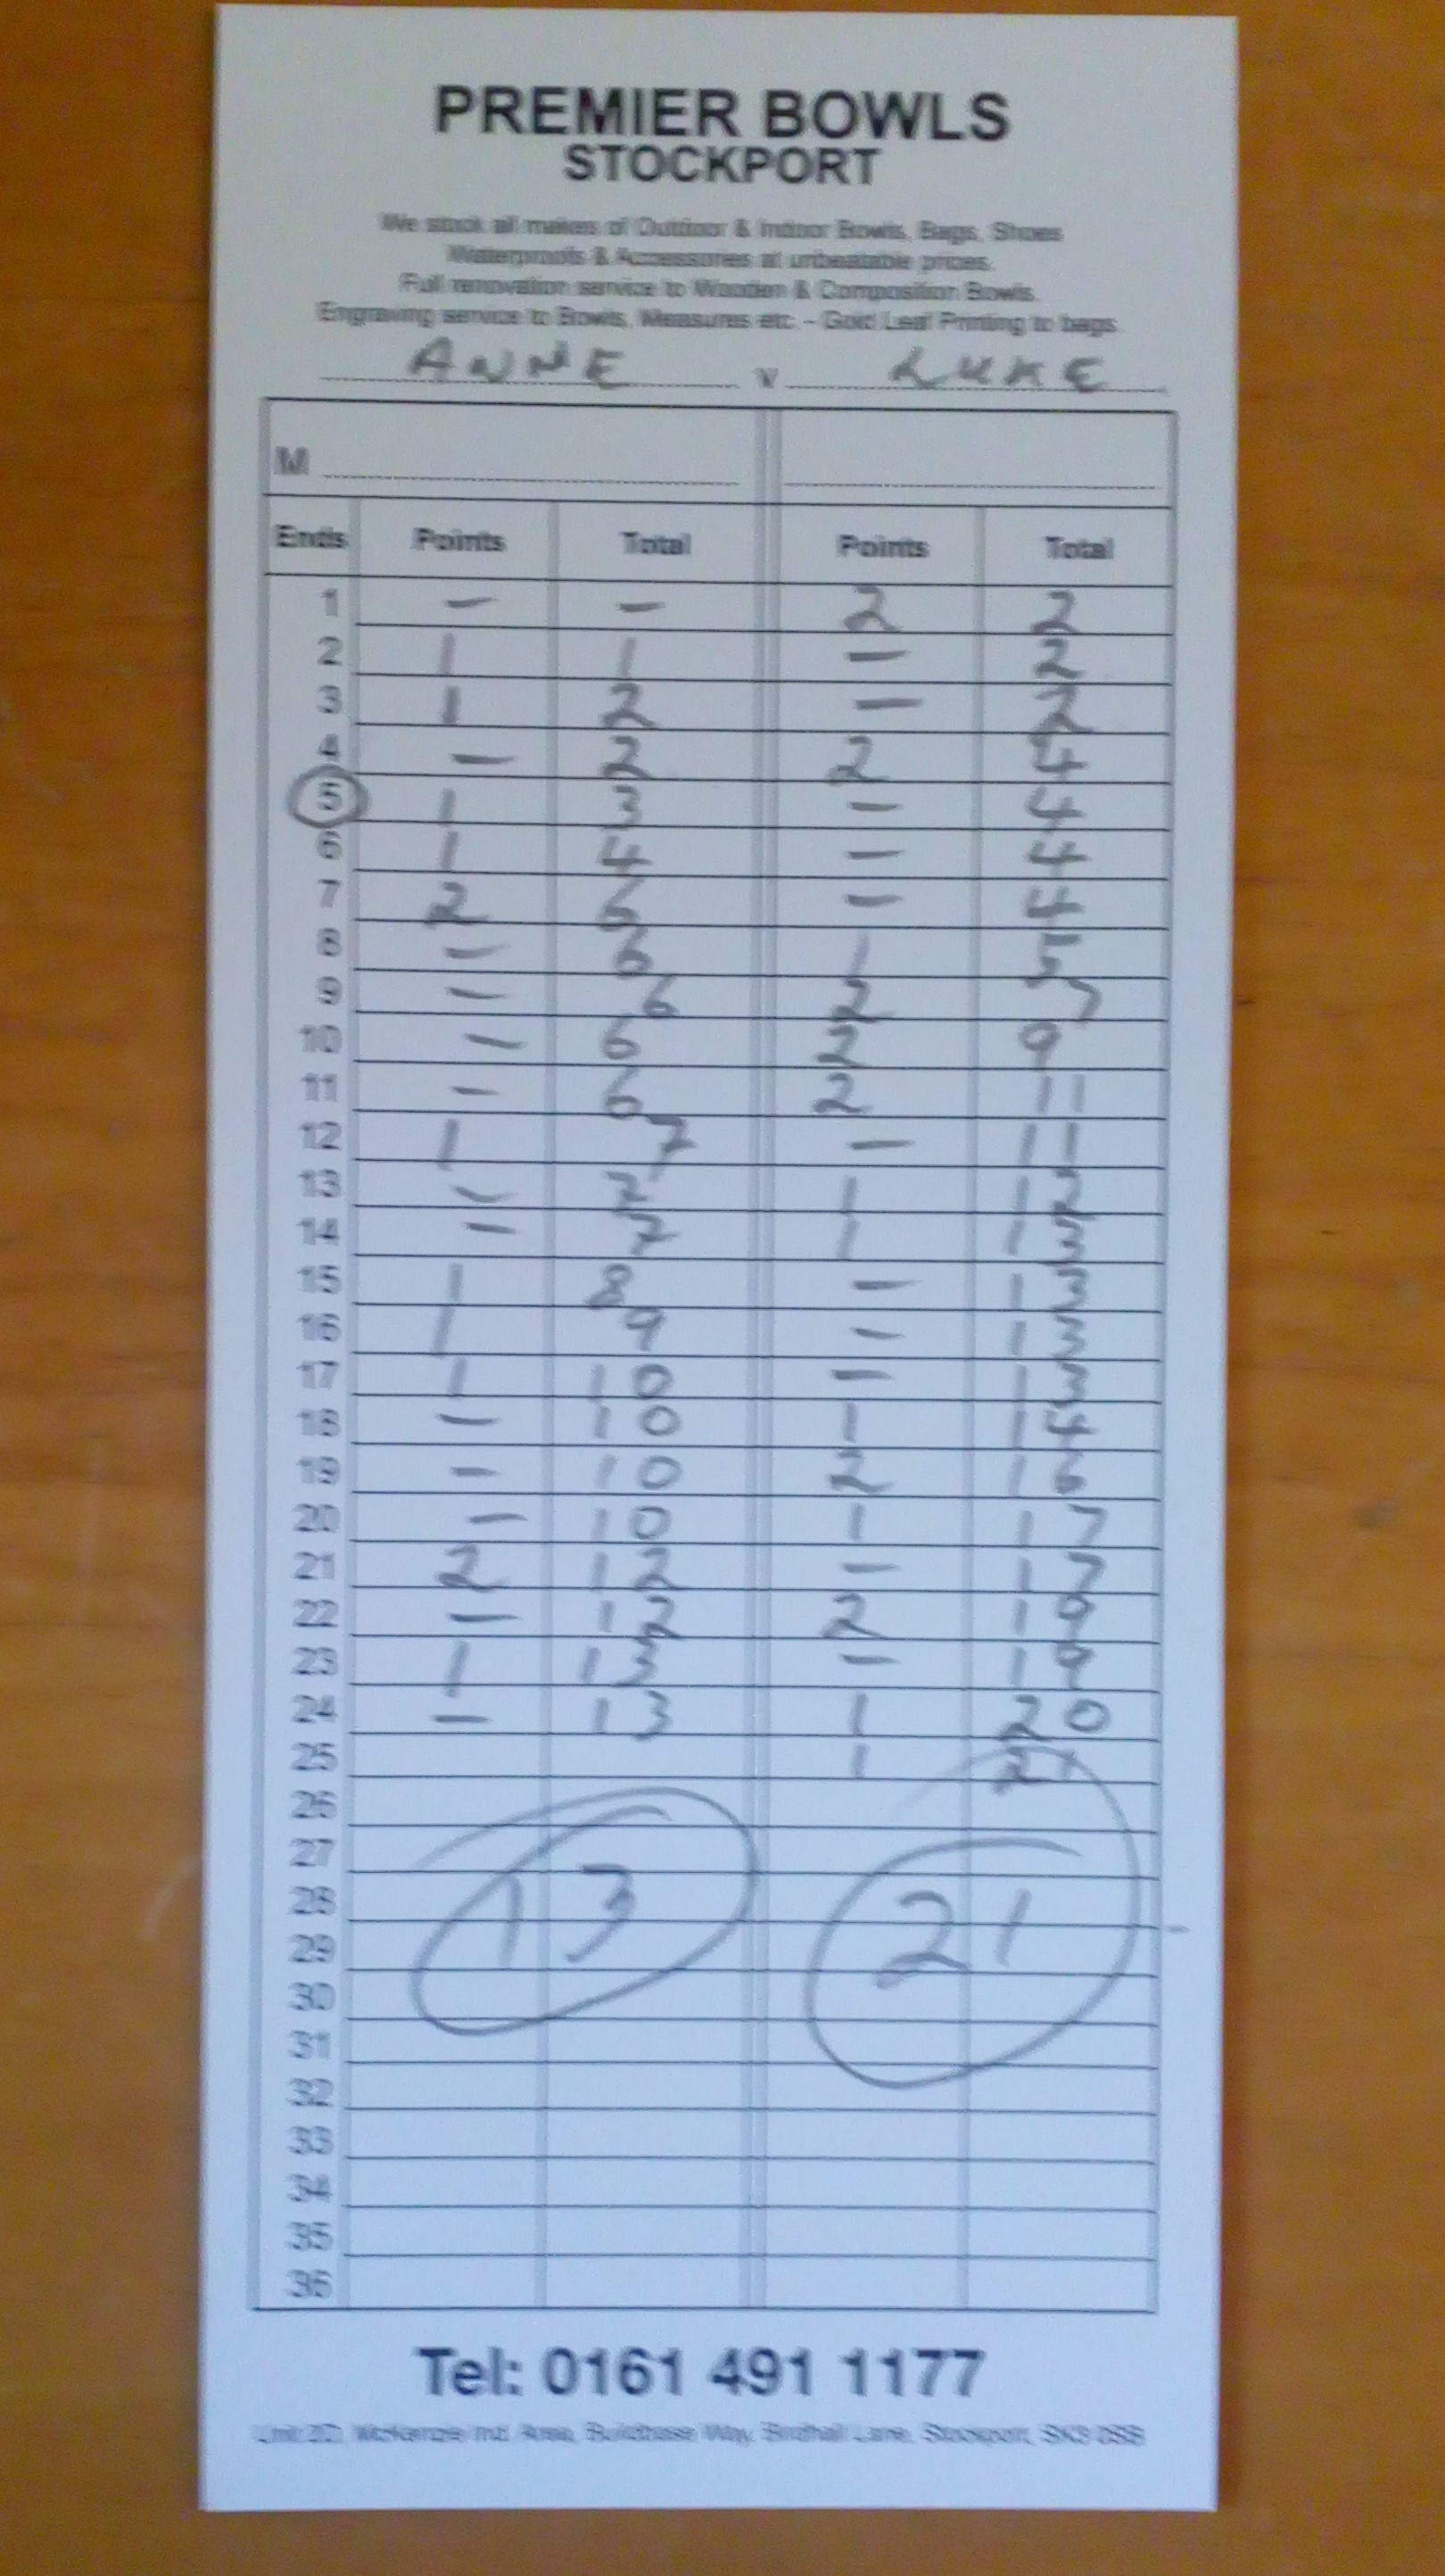 PREMIER BOWLS
STOCKPORT
We stock all makes of Outdoor & Indoor Bowls, Bags, Shoes
Waterproofs & Accessories at unbeatable prices.
Full renovation service to Wooden & Composition Bowls.
Engraving service to Bowls, Measures etc. - Gold Leaf Printing to bags.
ANNE v LUKE
M
Ends Points Total Points Total
1 - - 2 2
2 1 1 - 2
3 1 2 - 2
4 - 2 2 4
5 1 3 - 4
6 1 4 - 4
7 2 6 - 4
8 - 6 1 5
9 - 6 2 7
10 - 6 2 9
11 - 6 2 11
12 1 7 - 11
13 - 7 1 12
14 - 7 1 13
15 1 8 - 13
16 1 9 - 13
17 1 10 - 13
18 - 10 1 14
19 - 10 2 16
20 - 10 1 17
21 2 12 - 17
22 - 12 2 19
23 1 13 - 19
24 - 13 1 20
25 1 21
26
27
28 13 21
29
30
31
32
33
34
35
36
Tel: 0161 491 1177
Unit McKenzie Ind. Area, Birdhall Lane, Stockport, SK3